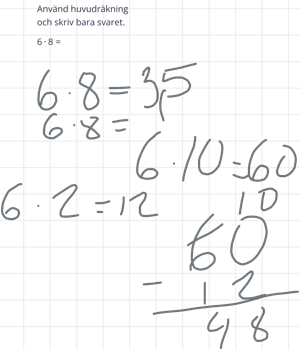 Använd huvudräkning
och skriv bara svaret.
6 · 8 =
6 · 8 = 3,5
6 · 8 =
6 · 10 = 60
6 · 2 = 12
10
60
- 12
48